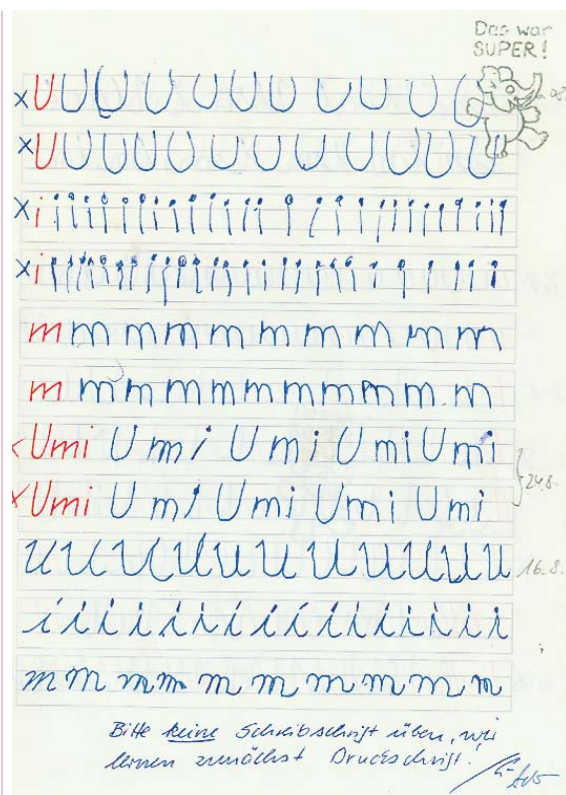 Das war
SUPER!
x U U U U U U U U U U U
x U U U U U U U U U U U U
x i i i i i i i i i i i i i i i i i i i i i i i
x i i i i i i i i i i i i i i i i i i i i i i i
m m m m m m m m m m
m m m m m m m m m m m
x Umi Umi Umi Umi Umi
x Umi Umi Umi Umi Umi
24.8.
U U U U U U U U U U U 16.8.
i i i i i i i i i i i i i i
m m m m m m m m m m
Bitte keine Schreibschrift üben, wir
lernen zunächst Druckschrift!